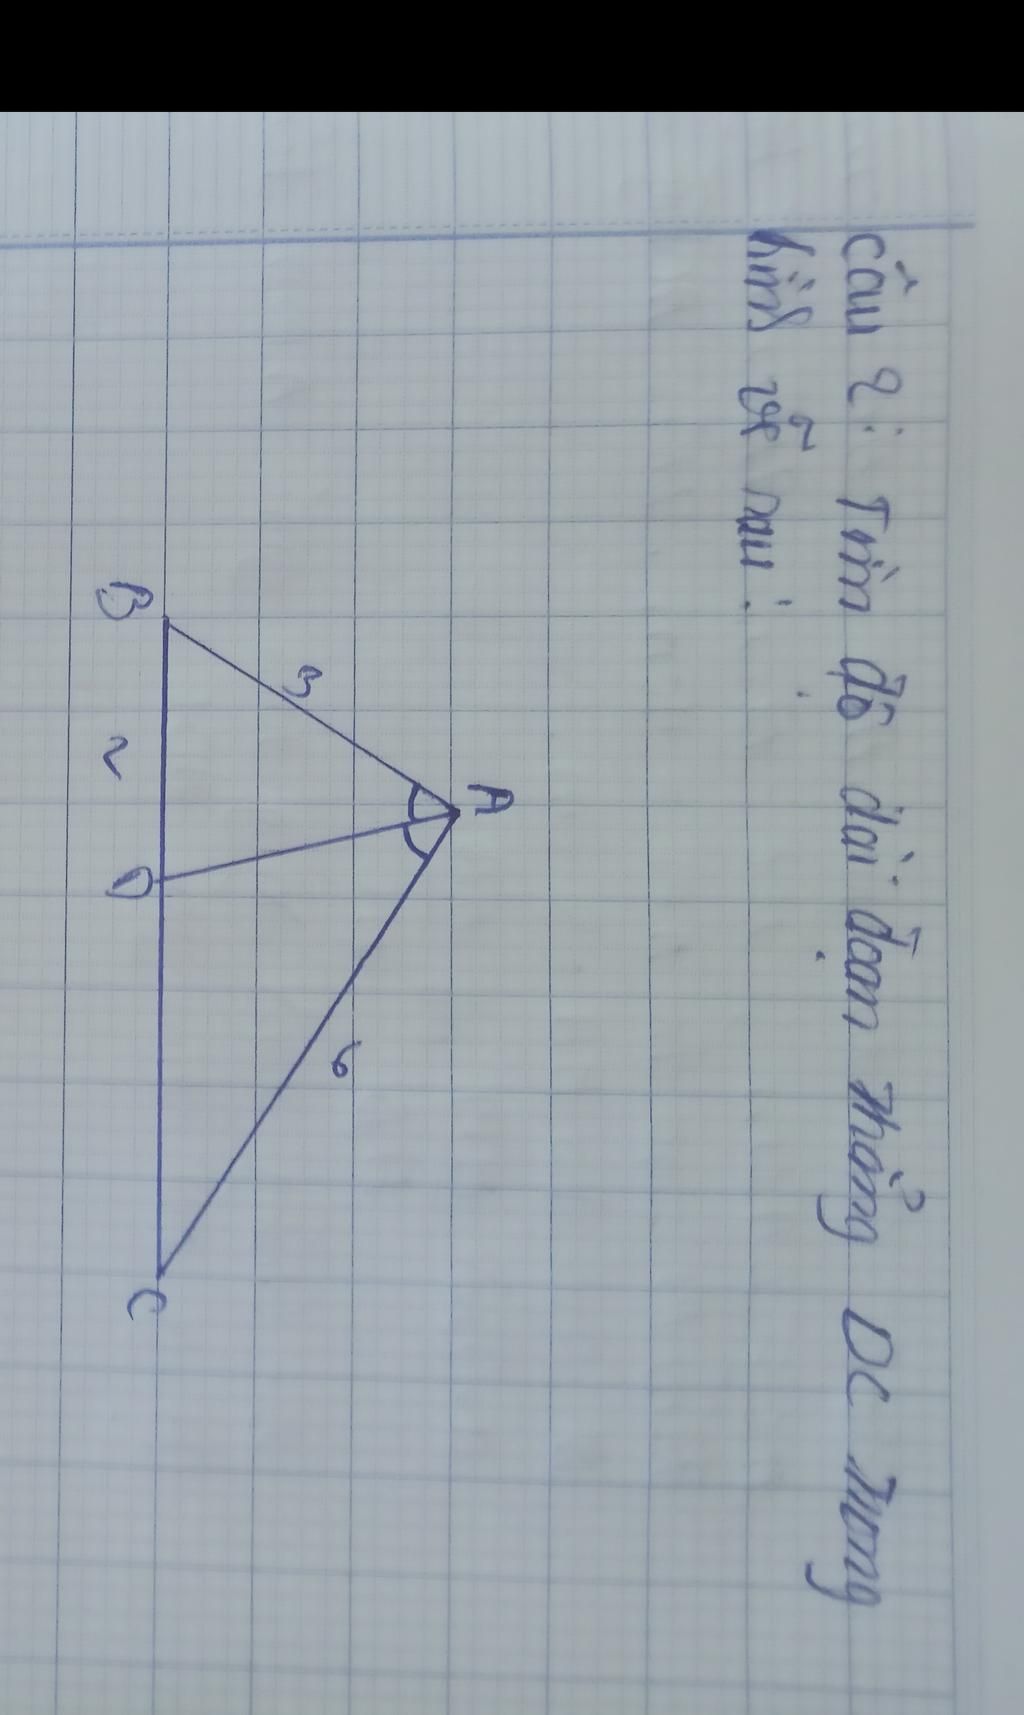 Câu 2: Tìm độ dài đoạn thẳng DC trong
hình vẽ sau:
A
3
6
B
2
D
C